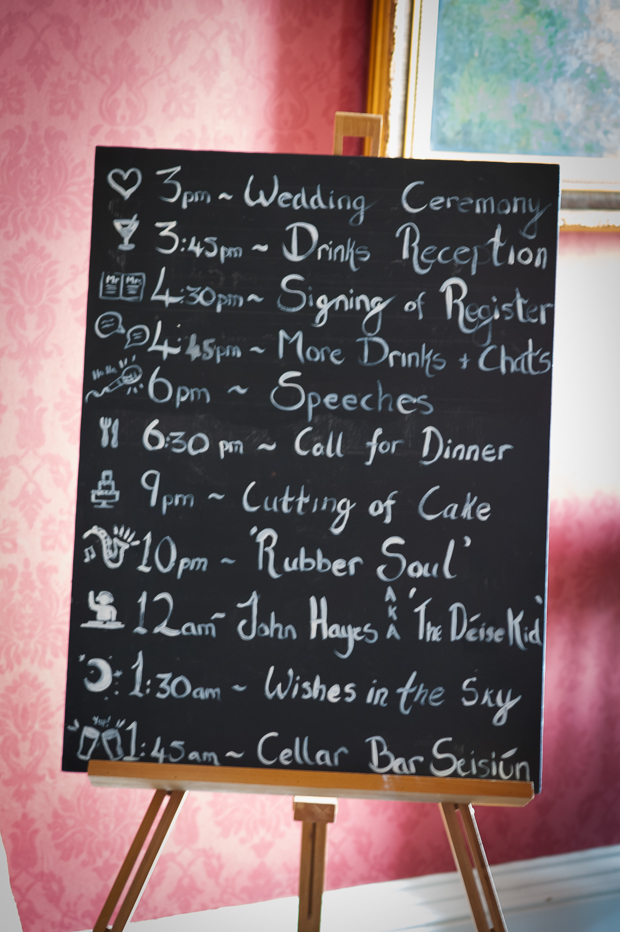 3pm ~ Wedding Ceremony
3:45pm ~ Drinks Reception
Mr Mr.
4:30pm ~ Signing of Register
4:45pm ~ More Drinks + Chats
6pm ~ Speeches
6:30 pm ~ Call for Dinner
9pm ~ Cutting of Cake
10pm ~ 'Rubber Soul'
12am ~ John Hayes AKA 'The Déise Kid'
1:30am ~ Wishes in the Sky
1:45am ~ Cellar Bar Seisiún